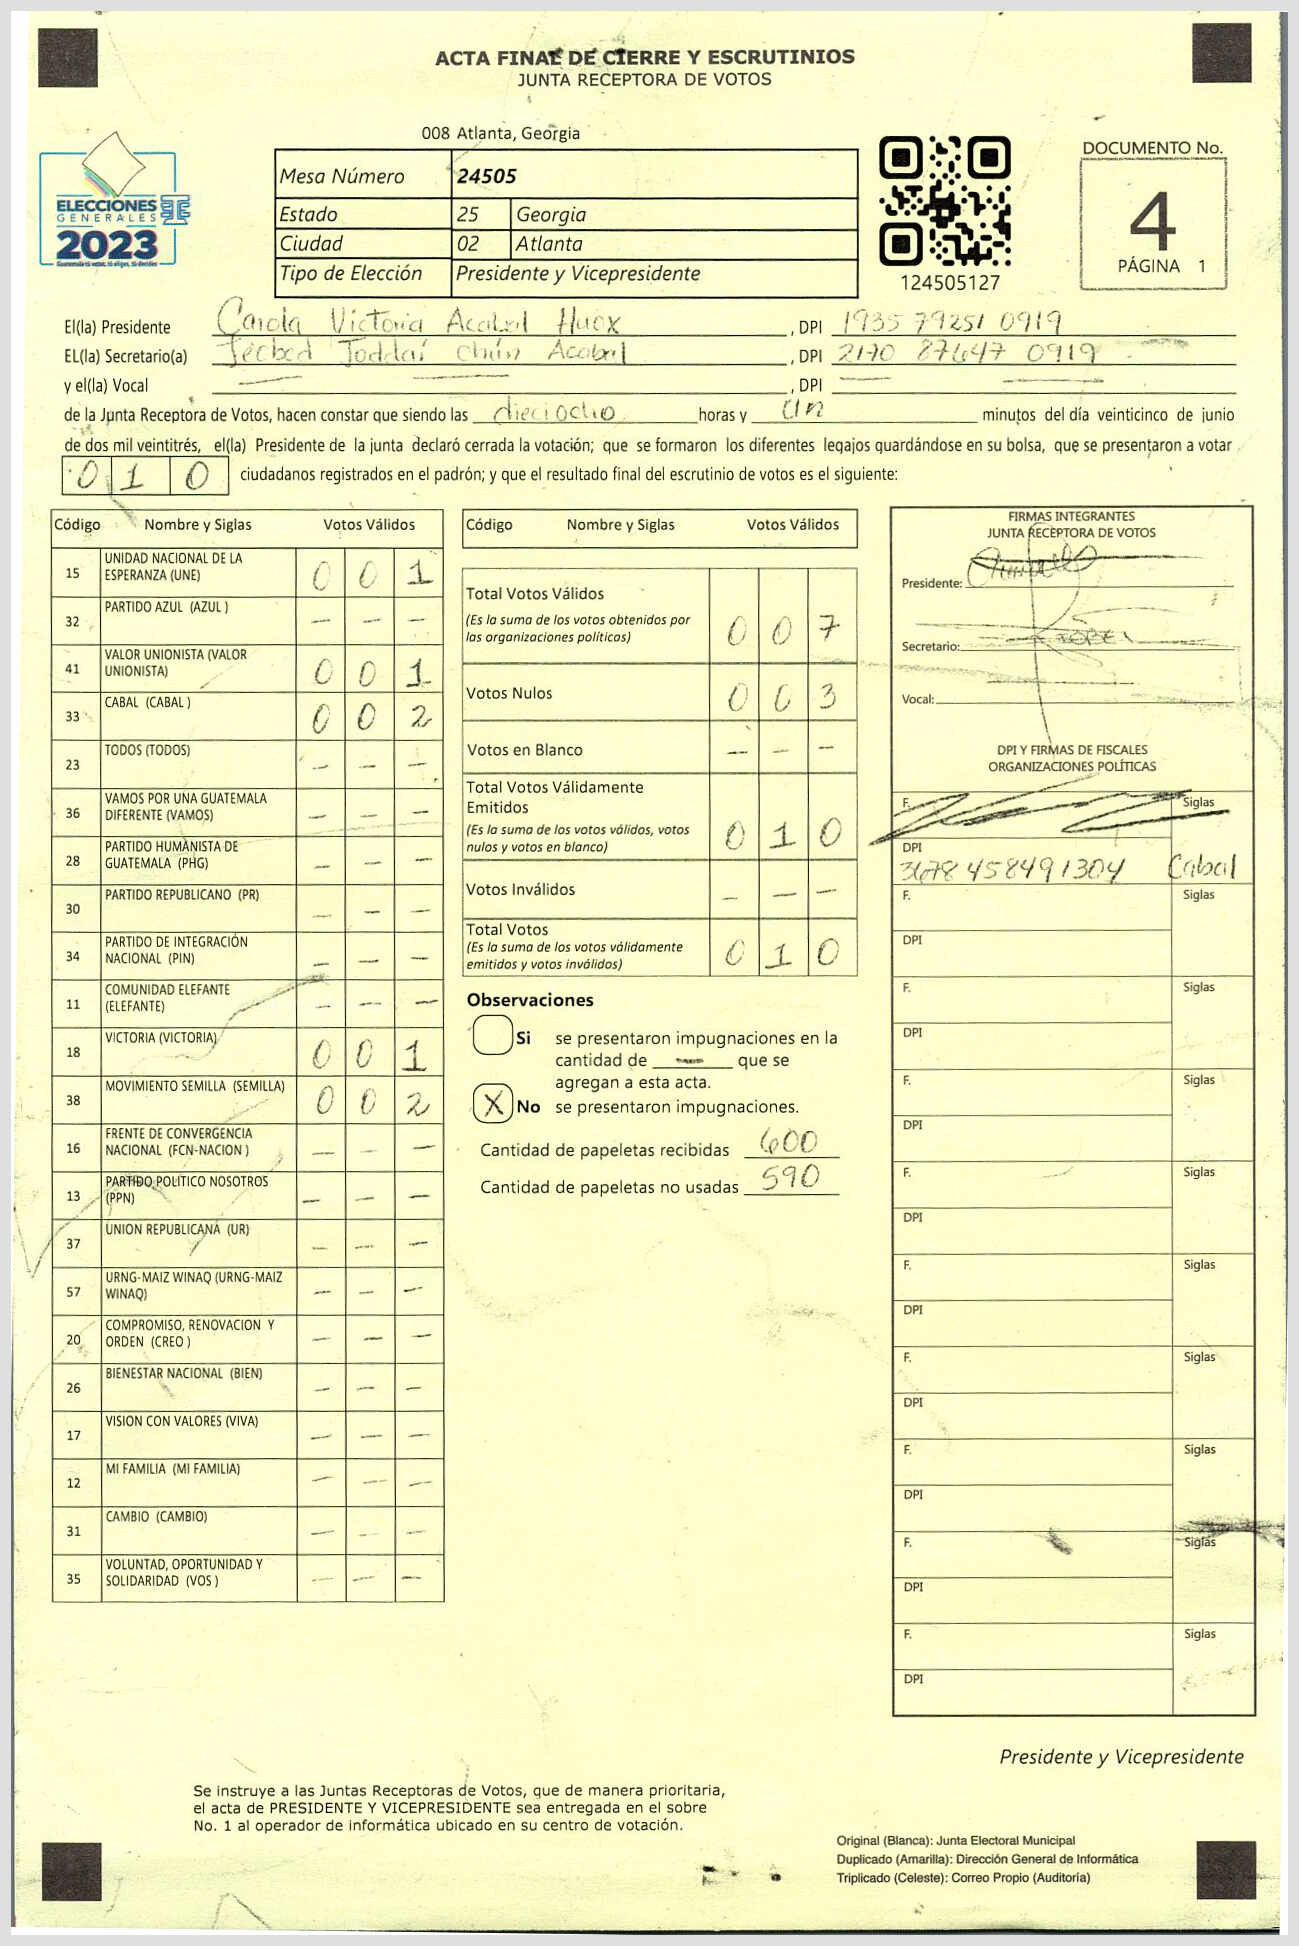 ACTA FINAL DE CIERRE Y ESCRUTINIOS
JUNTA RECEPTORA DE VOTOS
008 Atlanta, Georgia
ELECCIONES
GENERALES
2023
Mesa Número 24505
Estado 25 Georgia
Ciudad 02 Atlanta
Tipo de Elección Presidente y Vicepresidente
124505127
DOCUMENTO No.
4
PÁGINA 1
El(la) Presidente Carola Victoria Acabal Huox, DPI 1935 79251 0919
EL(la) Secretario(a) Joddaí Chún Acabal, DPI 2170 87647 0919
y el(la) Vocal — —, DPI — —
de la Junta Receptora de Votos, hacen constar que siendo las dieciocho horas y un minutos del día veinticinco de junio
de dos mil veintitrés, el(la) Presidente de la junta declaró cerrada la votación; que se formaron los diferentes legajos guardándose en su bolsa, que se presentaron a votar
0 1 0 ciudadanos registrados en el padrón; y que el resultado final del escrutinio de votos es el siguiente:
Código Nombre y Siglas Votos Válidos
15 UNIDAD NACIONAL DE LA ESPERANZA (UNE) 0 0 1
32 PARTIDO AZUL (AZUL ) — — —
41 VALOR UNIONISTA (VALOR UNIONISTA) 0 0 1
33 CABAL (CABAL ) 0 0 2
23 TODOS (TODOS) — — —
36 VAMOS POR UNA GUATEMALA DIFERENTE (VAMOS) — — —
28 PARTIDO HUMANISTA DE GUATEMALA (PHG) — — —
30 PARTIDO REPUBLICANO (PR) — — —
34 PARTIDO DE INTEGRACIÓN NACIONAL (PIN) — — —
11 COMUNIDAD ELEFANTE (ELEFANTE) — — —
18 VICTORIA (VICTORIA) 0 0 1
38 MOVIMIENTO SEMILLA (SEMILLA) 0 0 2
16 FRENTE DE CONVERGENCIA NACIONAL (FCN-NACION ) — — —
13 PARTIDO POLITICO NOSOTROS (PPN) — — —
37 UNION REPUBLICANA (UR) — — —
57 URNG-MAIZ WINAQ (URNG-MAIZ WINAQ) — — —
20 COMPROMISO, RENOVACION Y ORDEN (CREO ) — — —
26 BIENESTAR NACIONAL (BIEN) — — —
17 VISION CON VALORES (VIVA) — — —
12 MI FAMILIA (MI FAMILIA) — — —
31 CAMBIO (CAMBIO) — — —
35 VOLUNTAD, OPORTUNIDAD Y SOLIDARIDAD (VOS ) — — —
Código Nombre y Siglas Votos Válidos
Total Votos Válidos 0 0 7
(Es la suma de los votos obtenidos por
las organizaciones políticas)
Votos Nulos 0 0 3
Votos en Blanco — — —
Total Votos Válidamente
Emitidos 0 1 0
(Es la suma de los votos válidos, votos
nulos y votos en blanco)
Votos Inválidos — — —
Total Votos 0 1 0
(Es la suma de los votos válidamente
emitidos y votos inválidos)
Observaciones
Si se presentaron impugnaciones en la
cantidad de — que se
agregan a esta acta.
X No se presentaron impugnaciones.
Cantidad de papeletas recibidas 600
Cantidad de papeletas no usadas 590
FIRMAS INTEGRANTES
JUNTA RECEPTORA DE VOTOS
Presidente:
Secretario:
Vocal:
DPI Y FIRMAS DE FISCALES
ORGANIZACIONES POLÍTICAS
F. Siglas
DPI
3678 458491304 Cabal
F. Siglas
DPI
F. Siglas
DPI
F. Siglas
DPI
F. Siglas
DPI
F. Siglas
DPI
F. Siglas
DPI
F. Siglas
DPI
F. Siglas
DPI
F. Siglas
DPI
Presidente y Vicepresidente
Se instruye a las Juntas Receptoras de Votos, que de manera prioritaria,
el acta de PRESIDENTE Y VICEPRESIDENTE sea entregada en el sobre
No. 1 al operador de informática ubicado en su centro de votación.
Original (Blanca): Junta Electoral Municipal
Duplicado (Amarilla): Dirección General de Informática
Triplicado (Celeste): Correo Propio (Auditoría)